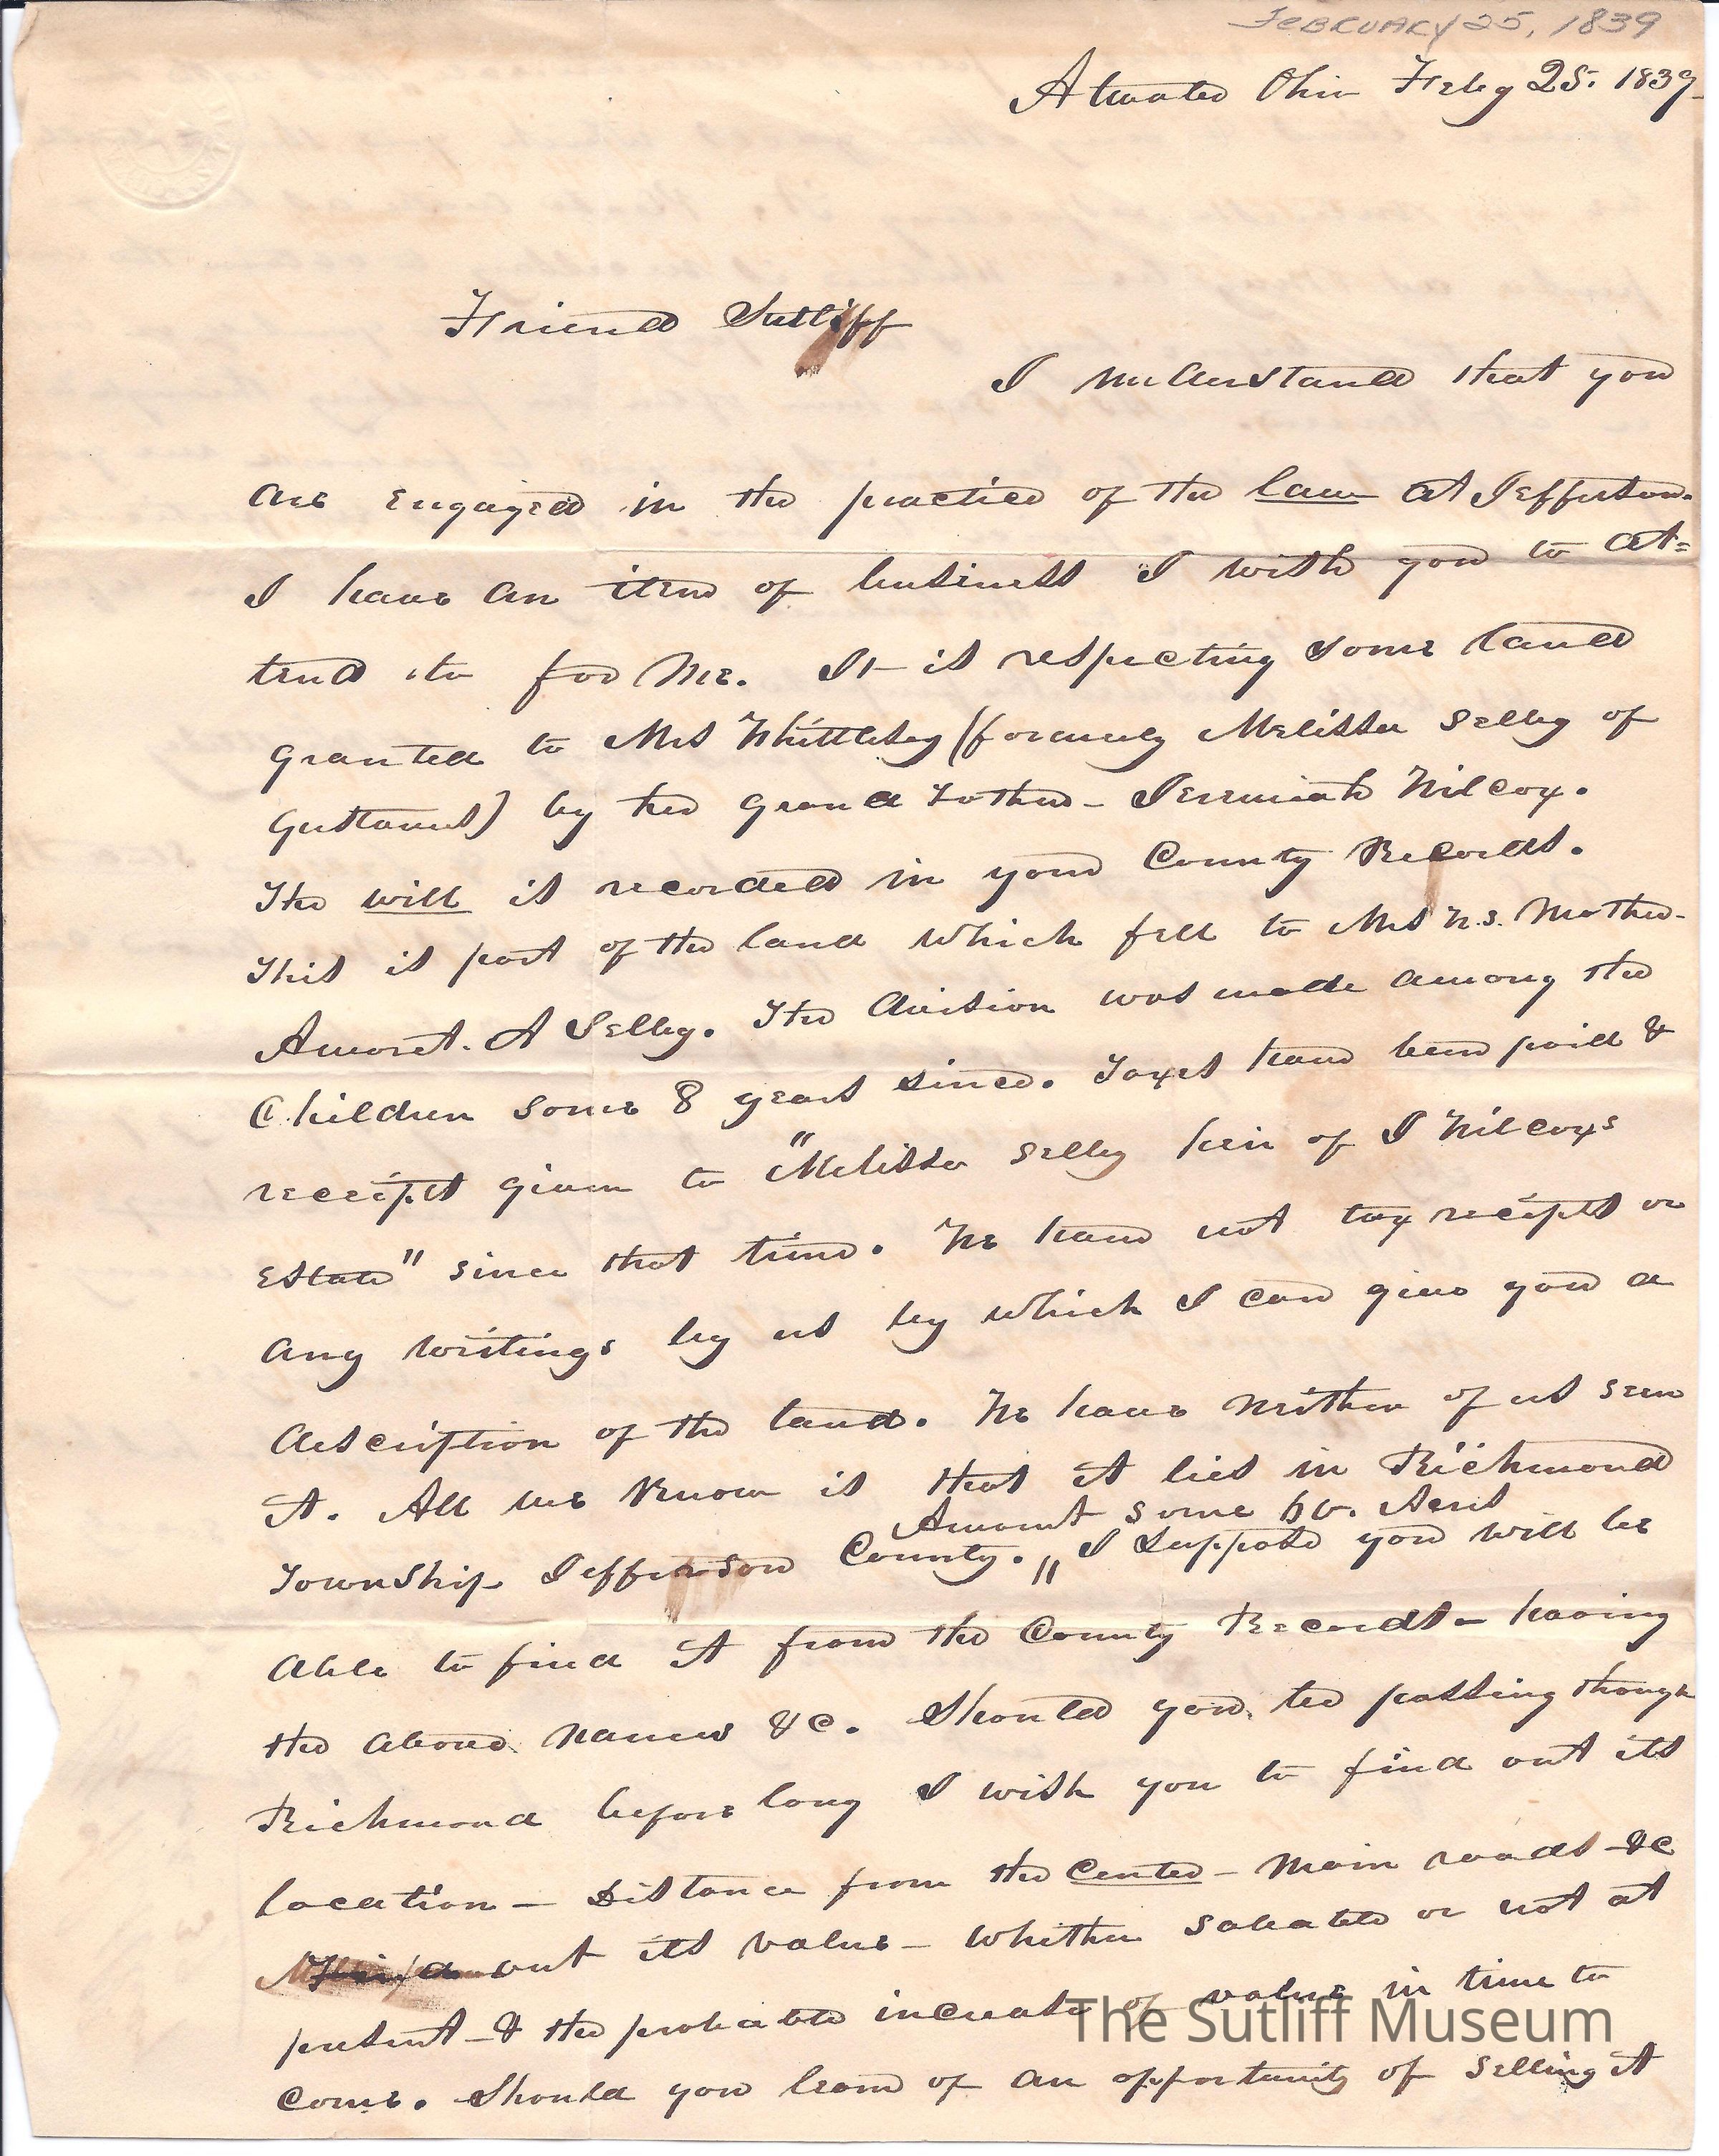 FEBRUARY 25, 1839
Atwater Ohio Feby 25. 1839
Friend Sutliff
I understand that you
are engaged in the practice of the law at Jefferson.
I have an item of business I wish you to at=
tend to for me. It is respecting some land
granted to Mrs Whittlesey (formerly Melissa Selby of
Gustavus) by her Grand Father - Jeremiah Wilcox.
The will is recorded in your County Records.
This is part of the land which fell to Mrs W.s. Mother-
Amoret. A Selby. The division was made among the
Children some 8 years since. Taxes have been paid &
receipts given to "Melissa Selby heir of J Wilcoxs
Estate" since that time. We have not tax receipts or
any writings by us by which I can give you a
description of the land. We have neither of us seen
it. All we know is that it lies in Richmond
Amount some 60. Acres
Township Jefferson County. " I suppose you will be
able to find it from the County Records - having
the above names &c. Should you be passing though
Richmond before long I wish you to find out its
location - Distance from the Center - Main roads - &c
out its value - whether saleable or not at
present - & the probable increase of value in time to
come. Should you learn of an opportunity of selling it
The Sutliff Museum